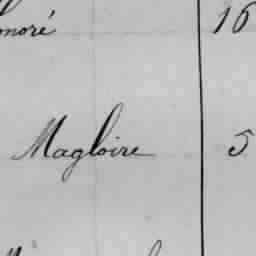 onoré 16
Magloire 5